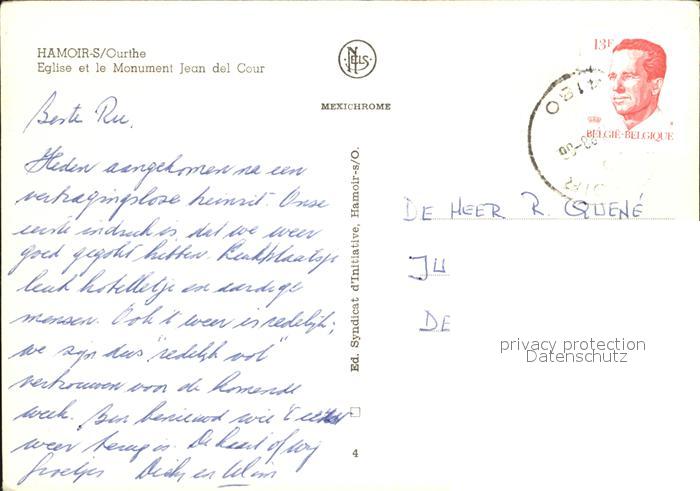 HAMOIR-S/Ourthe
Eglise et le Monument Jean del Cour
NELS
MEXICHROME
13F
BELGIË-BELGIQUE
Beste Ru,
Heden aangekomen na een
vertragingsloze treinrit. Onze
eerste indruk is dat we weer
goed gegokt hebben. Leuk plaatsje
leuk hotelletje en aardige
mensen. Ook 't weer is redelijk;
we zijn dus "redelijk vol"
vertrouwen voor de komende
week. Ben benieuwd wie 't eerst
weer terug is. De kaart of wij
Groetjes Dicky en Wim
Ed. Syndicat d'Initiative, Hamoir-s/O.
4
DE HEER R. QUENÉ
JU
DE
privacy protection
Datenschutz